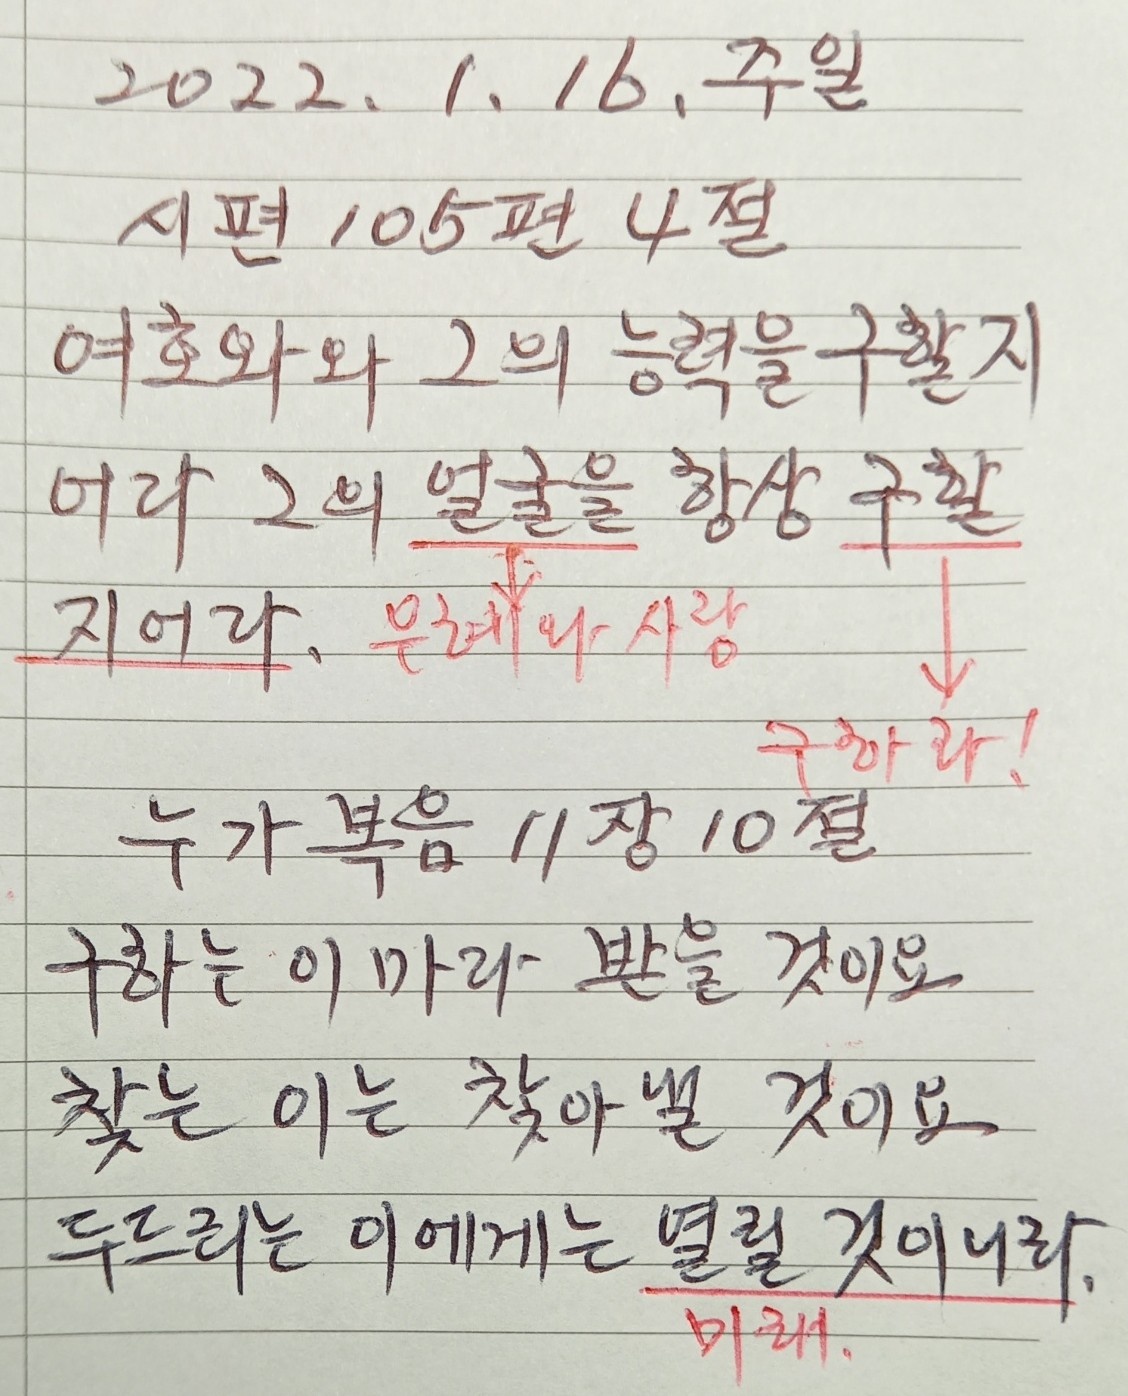 2022. 1. 16. 주일
시편 105편 4절
여호와와 그의 능력을 구할지
어라 그의 얼굴을 항상 구할
지어라. 은혜와 사랑
구하라!
누가복음 11장 10절
구하는 이마라 받을 것이요
찾는 이는 찾아낼 것이요
두드리는 이에게는 열릴 것이니라.
미래.